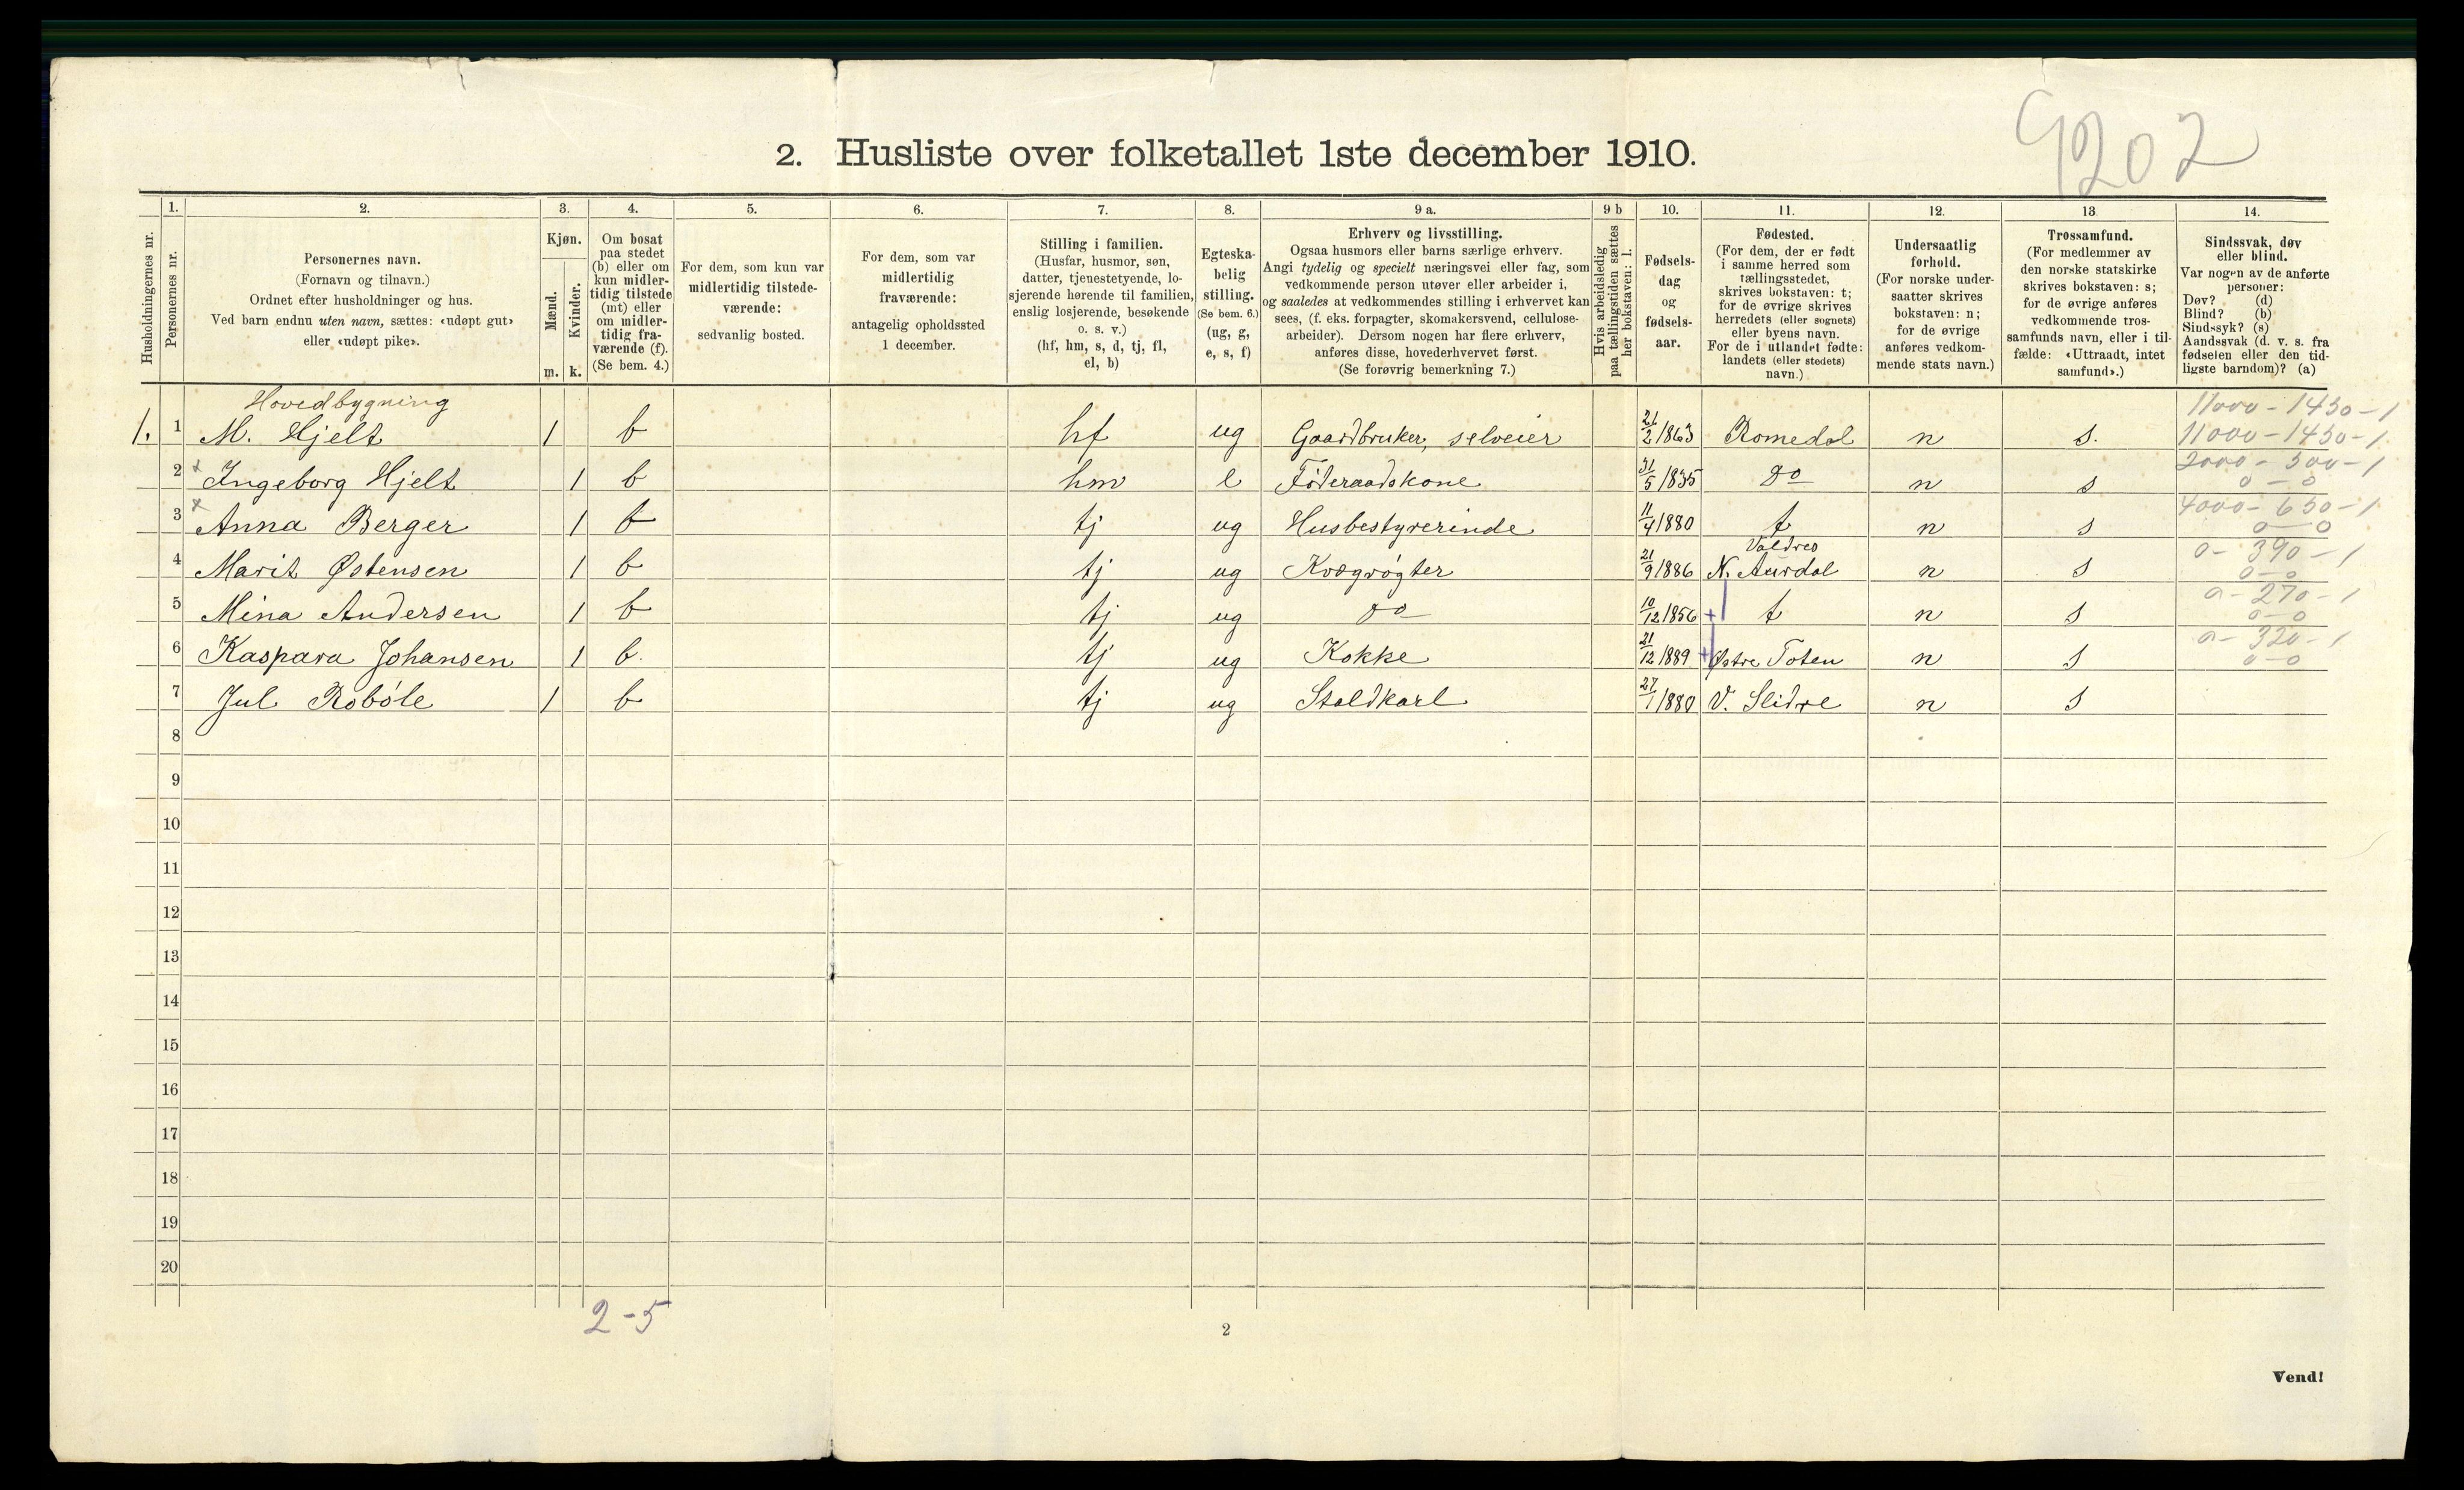 9202
2. Husliste over folketallet 1ste december 1910.
Husholdningernes nr.
1.
Personernes nr.
2.
Personernes navn.
(Fornavn og tilnavn.)
Ordnet efter husholdninger og hus.
Ved barn endnu uten navn, sættes: «udøpt gut»
eller «udøpt pike».
3.
Kjøn.
Mænd.
Kvinder.
m. k.
4.
Om bosat
paa stedet
(b) eller om
kun midler-
tidig tilstede
(mt) eller
om midler-
tidig fra-
værende (f).
(Se bem. 4.)
5.
For dem, som kun var
midlertidig tilstede-
værende:
sedvanlig bosted.
6.
For dem, som var
midlertidig
fraværende:
antagelig opholdssted
1 december.
7.
Stilling i familien.
(Husfar, husmor, søn,
datter, tjenestetyende, lo-
sjerende hørende til familien,
enslig losjerende, besøkende
o. s. v.)
(hf, hm, s, d, tj, fl,
el, b)
8.
Egteska-
belig
stilling.
(Se bem. 6.)
(ug, g,
e, s, f)
9 a.
Erhverv og livsstilling.
Ogsaa husmors eller barns særlige erhverv.
Angi tydelig og specielt næringsvei eller fag, som
vedkommende person utøver eller arbeider i,
og saaledes at vedkommendes stilling i erhvervet kan
sees, (f. eks. forpagter, skomakersvend, cellulose-
arbeider). Dersom nogen har flere erhverv,
anføres disse, hovederhvervet først.
(Se forøvrig bemerkning 7.)
9 b
Hvis arbeidsledig
paa tællingstiden sættes
her bokstaven: l.
10.
Fødsels-
dag
og
fødsels-
aar.
11.
Fødested.
(For dem, der er født
i samme herred som
tællingsstedet,
skrives bokstaven: t;
for de øvrige skrives
herredets (eller sognets)
eller byens navn.
For de i utlandet fødte:
landets (eller stedets)
navn.)
12.
Undersaatlig
forhold.
(For norske under-
saatter skrives
bokstaven: n;
for de øvrige
anføres vedkom-
mende stats navn.)
13.
Trossamfund.
(For medlemmer av
den norske statskirke
skrives bokstaven: s;
for de øvrige anføres
vedkommende tros-
samfunds navn, eller i til-
fælde: «Uttraadt, intet
samfund».)
14.
Sindssvak, døv
eller blind.
Var nogen av de anførte
personer:
Døv? (d)
Blind? (b)
Sindssyk? (s)
Aandssvak (d. v. s. fra
fødselen eller den tid-
ligste barndom)? (a)
Hovedbygning
11000-1430-1
1. 1 M. Hjelt 1 b hf ug Gaardbruker, selveier 21/2 1863 Romedal n s. 11000-1430-1
2000-300-1
2 x Ingeborg Hjelt 1 b hm e Føderaadskone 31/5 1835 do n s 0-0
4000-650-1
3 x Anna Berger 1 b tj ug Husbestyrerinde 11/4 1880 t n s 0-0
Valdres 0-390-1
4 Marit Østensen 1 b tj ug Kvægrøgter 21/9 1886 N. Aurdal n s 0-0
0-270-1
5 Mina Andersen 1 b tj ug do 10/12 1856 + t n s 0-0
0-320-1
6 Kaspara Johansen 1 b. tj ug Kokke 21/12 1889 + Østre Toten n s 0-0
7 Jul Robøle 1 b tj ug Staldkarl 27/1 1880 V. Slidre n s
8
9
10
11
12
13
14
15
16
17
18
19
20
2-5
2
Vend!